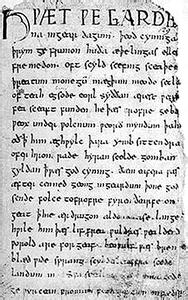 HǷÆT ǷE GARDE
na ingear dagum. þeod cyninga
þrym ge frunon huða æþelingas elle
fre medon. oft scyld scefing sceaþe
þreatum monegū mægþum meodo setla
of teah egsode eorl syððan ærest ƿear
fea sceaft funden he þæs frofre geba
ƿeox under ƿolcnum ƿeorð myndum þah
oð þ him æghƿylc þara ymb sittendra
ofer hron rade hyran scolde gomban
gyldan þ ƿæs god cyning. ðæm eafera ƿæs
æfter cenned geong ingeardum þone god
sende folce tofrofre fyren ðearfe on
geat þ hie ær drugon aldor ase. lange
hƿile him þæs lif frea ƿuldres ƿealdend
ƿorold are for geaf. beoƿulf ƿæs breme
blæd ƿide sprang scyldes eafera scede
landum in. Sƿa sceal
ge ƿyrcean fromum feoh giftum. on fæder